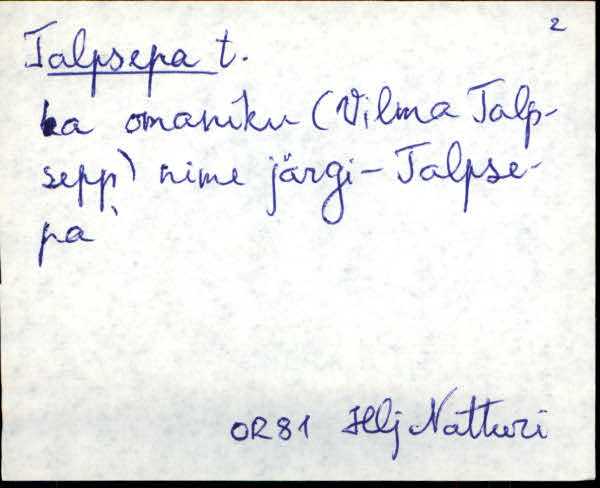 2
Talpsepa t.
ka omaniku (Vilma Talp-
sepp) nime järgi - Talpse-
pa
OR81 Hlj Natturi